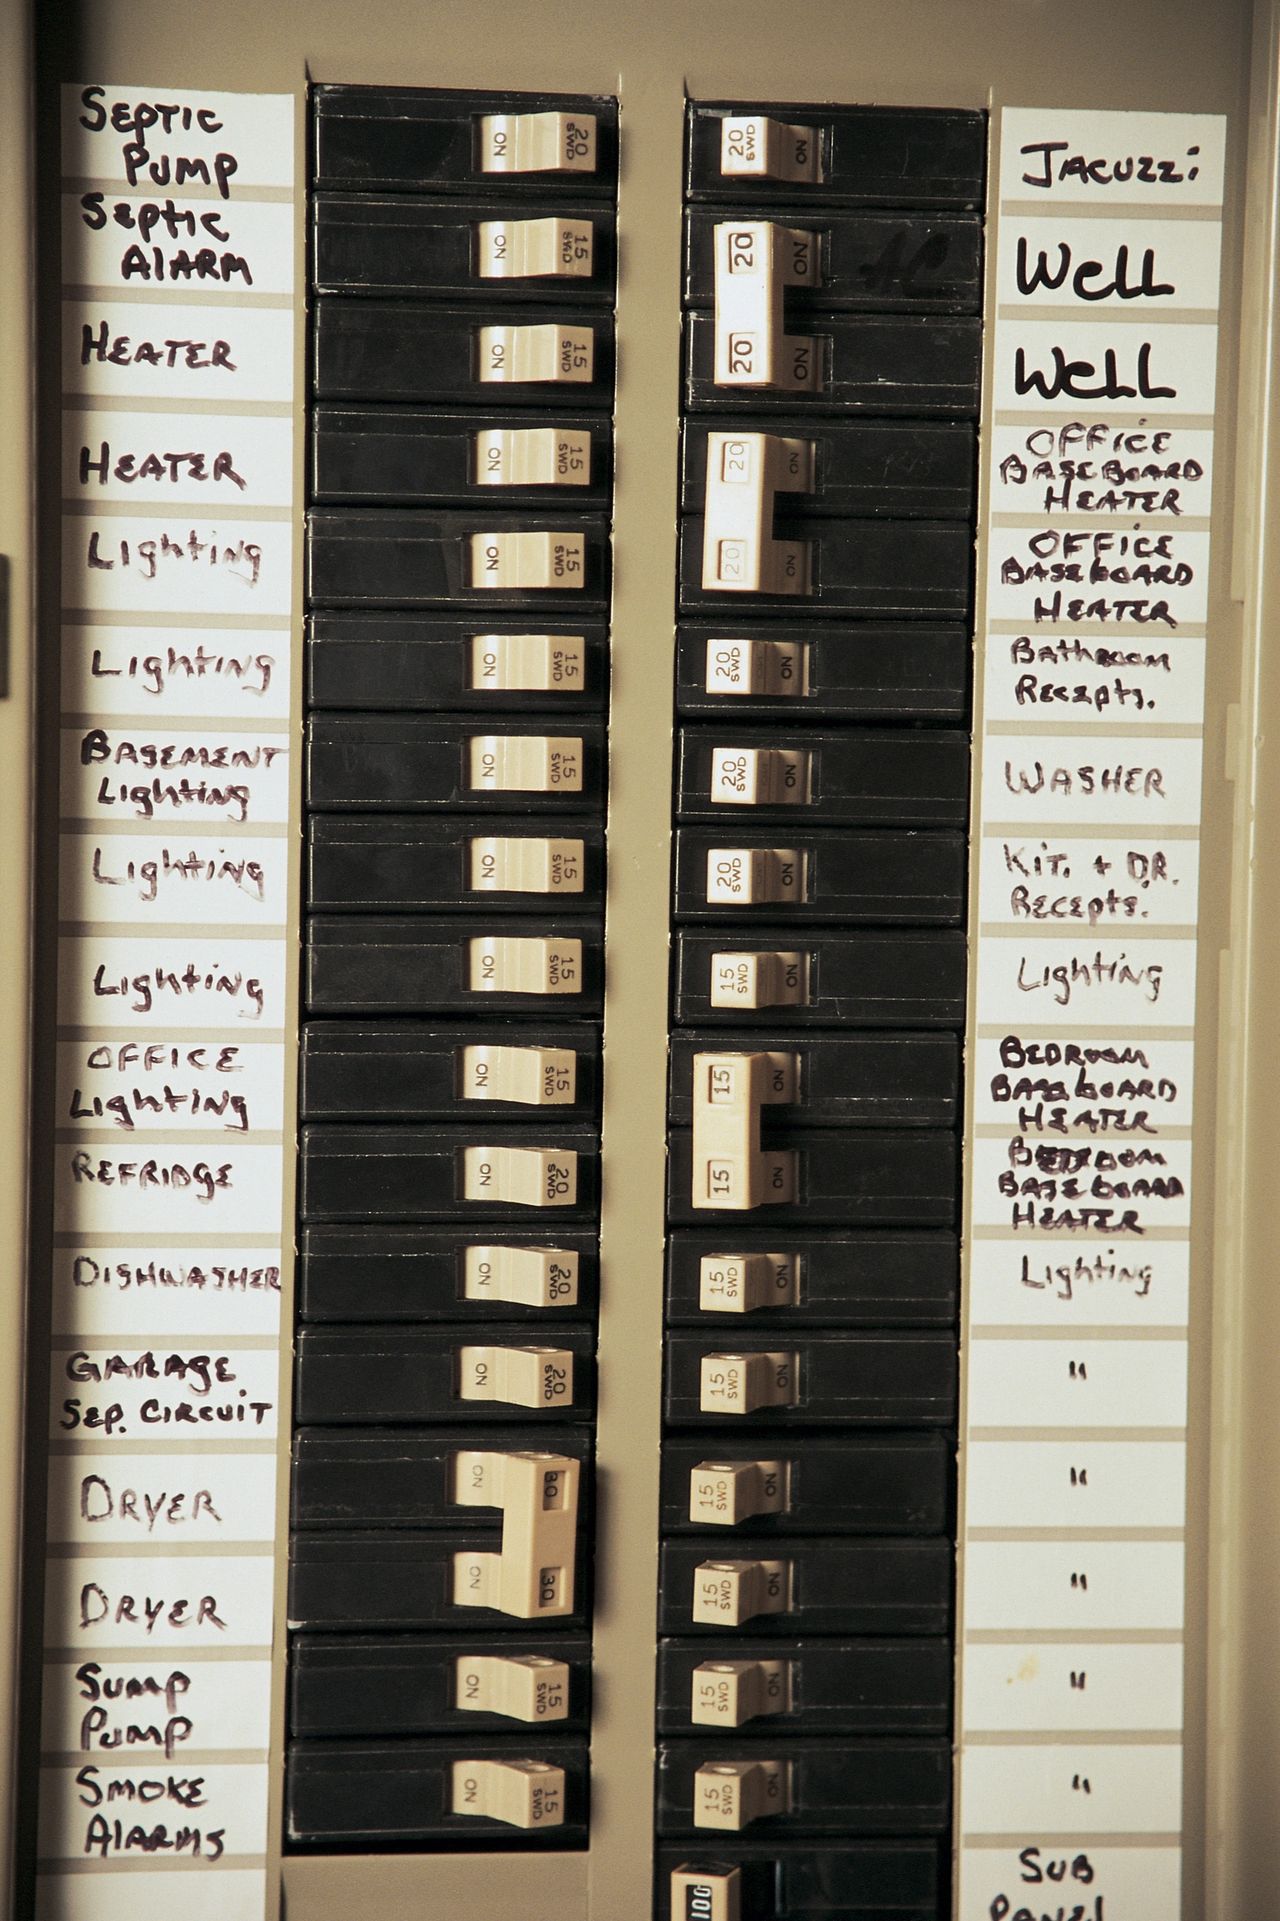 SEPTIC
PUMP
SEPTIC
ALARM
HEATER
HEATER
Lighting
Lighting
BASEMENT
Lighting
Lighting
Lighting
OFFICE
Lighting
REFRIDGE
DISHWASHER
GARAGE
SEP. CIRCUIT
DRYER
DRYER
SUMP
PUMP
SMOKE
ALARMS
ON 20 SWD
ON 15 SWD
ON 15 SWD
ON 15 SWD
ON 15 SWD
ON 15 SWD
ON 15 SWD
ON 15 SWD
ON 15 SWD
ON 15 SWD
ON 20 SWD
ON 20 SWD
ON 20 SWD
ON 30
ON 30
ON 15 SWD
ON 15 SWD
20 SWD ON
20 ON
20 ON
20 ON
20 ON
20 SWD ON
20 SWD ON
20 SWD ON
15 SWD ON
15 ON
15 ON
15 SWD ON
15 SWD ON
15 SWD ON
15 SWD ON
15 SWD ON
15 SWD ON
100
JACUZZI
WELL
WELL
OFFICE
BASEBOARD
HEATER
OFFICE
BASEBOARD
HEATER
Bathroom
Recepts.
WASHER
KIT. + D.R.
Recepts.
Lighting
BEDROOM
BASEBOARD
HEATER
BEDROOM
BASEBOARD
HEATER
Lighting
"
"
"
"
"
SUB
PANEL